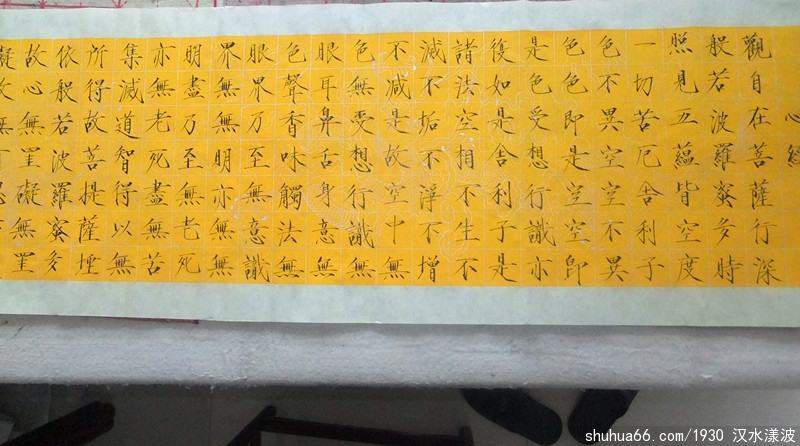 心經
觀自在菩薩行深
般若波羅蜜多時
照見五蘊皆空度
一切苦厄舍利子
色不異空空不異
色色即是空空即
是色受想行識亦
復如是舍利子是
諸法空相不生不
減不垢不淨不增
不減是故空中無
色無受想行識無
眼耳鼻舌身意無
色聲香味觸法無
眼界乃至無意識
界無無明亦無無
明盡乃至無老死
亦無老死盡無苦
集減道智得以無
所得故菩提薩埵
依般若波羅蜜多
故心無罣礙無罣
礙故無
shuhua66.com/1930 汉水漾波